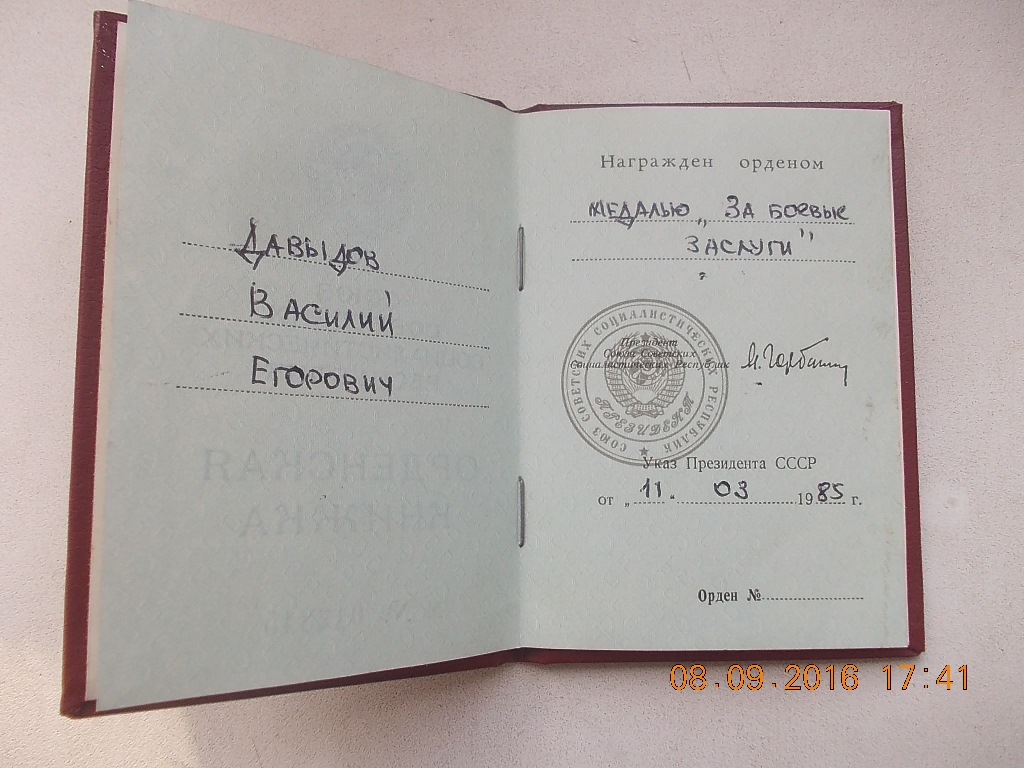 Давыдов
Василий
Егорович
Награжден орденом
медалью „За боевые
заслуги"
Президент
Союза Советских
Социалистических Республик
СОЮЗ СОВЕТСКИХ СОЦИАЛИСТИЧЕСКИХ РЕСПУБЛИК
ПРЕЗИДЕНТ
Указ Президента СССР
от „11" 03 1985 г.
Орден №
ОРДЕНСКАЯ
КНИЖКА
08.09.2016 17:41